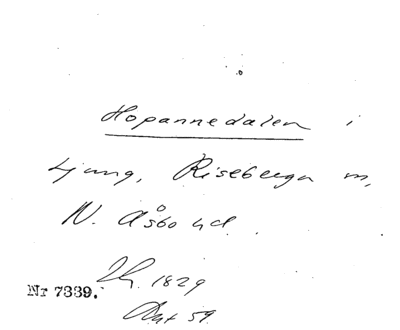 Hopannedalen i
Ljung, Riseberga m,
N. Åsbo hd.
1829
Nr 7339.
59